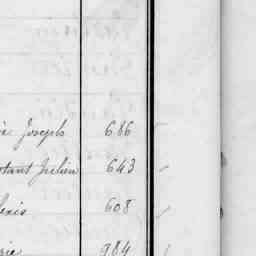 Joseph 686
stant Julien 643
exis 608
rie 984